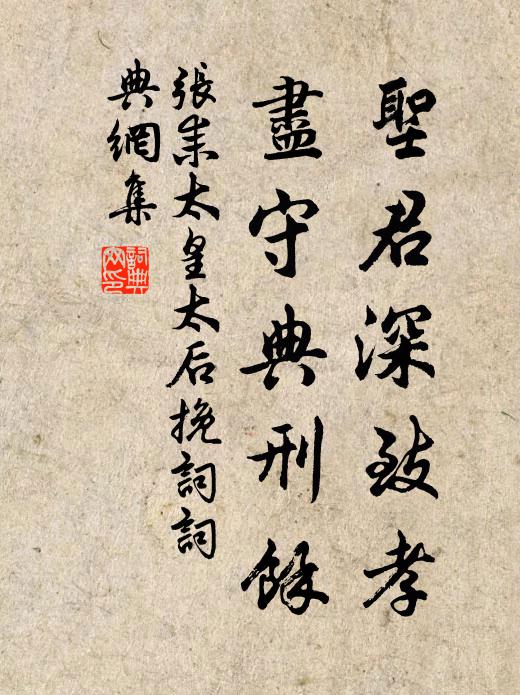 聖君深致孝
盡守典刑餘
張耒太皇太后挽詞詞
典網集
詞典网印